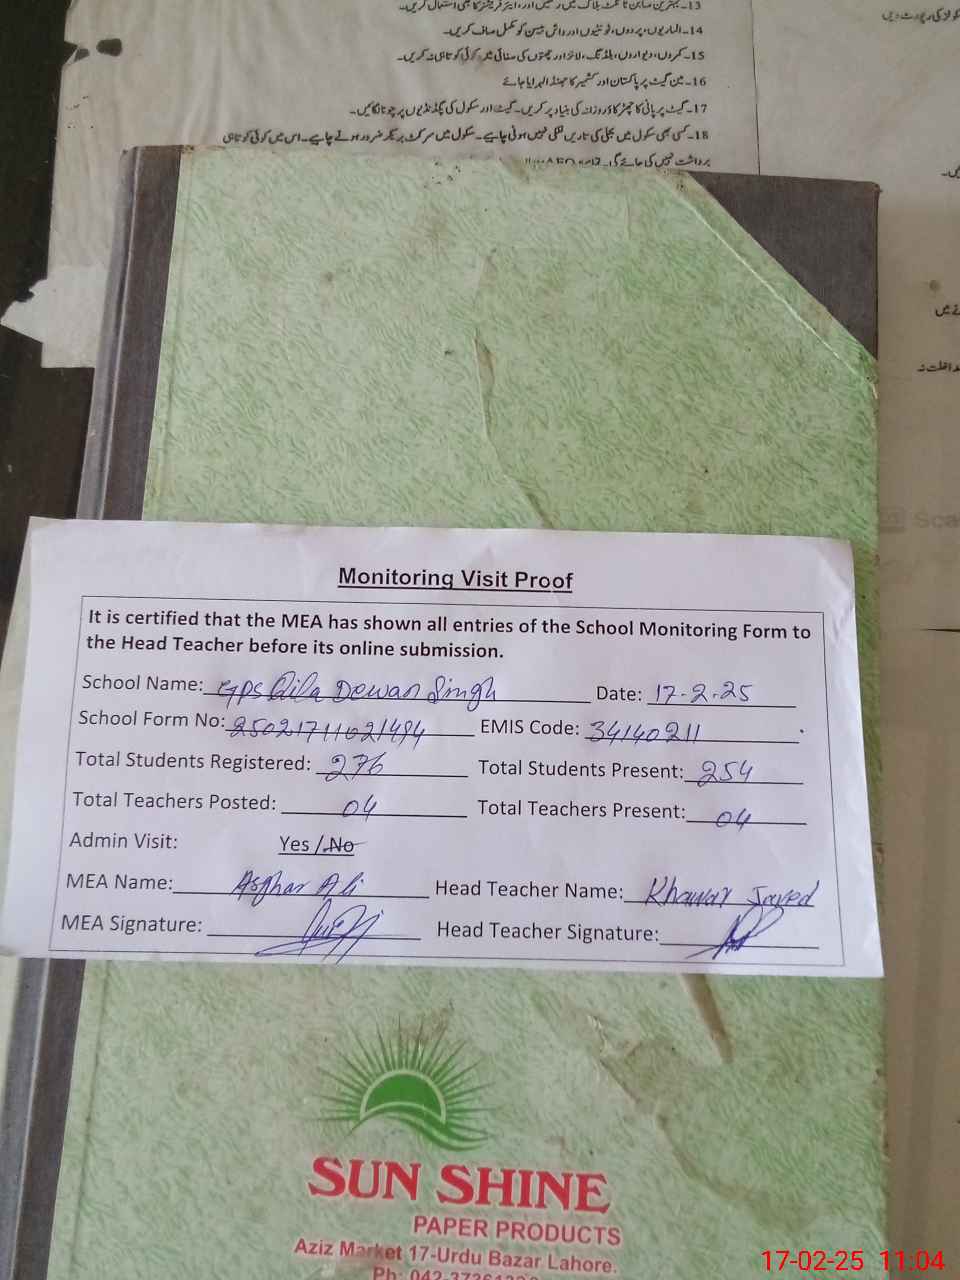 13۔بہترین صابن ٹائلٹ بلاک میں رکھیں اور، ایئر فریشنر کا بھی استعمال کریں۔
14۔الماریوں، پردوں، ٹونٹیوں اور واش بیسن کو مکمل صاف کریں۔
15۔کمروں، دیواروں، بلڈنگ، لانز اور چھتوں کی صفائی میں کوئی کوتاہی نہ کریں۔
16۔مین گیٹ پر پاکستان اور کشمیر کا جھنڈا لہرایا جائے
17۔گیٹ پر پانی کا چھڑکاؤ روزانہ کی بنیاد پر کریں۔ گیٹ اور سکول کی پگڈنڈیوں پر چونا لگائیں۔
18۔کسی بھی سکول میں بجلی کی تاریں ننگی نہیں ہونی چاہیے۔ سکول میں سرکٹ بریکر ضرور ہونے چاہیے۔ اس میں کوئی کوتاہی
برداشت نہیں کی جائے گی۔
کی رپورٹ دیں
Monitoring Visit Proof
It is certified that the MEA has shown all entries of the School Monitoring Form to
the Head Teacher before its online submission.
School Name: GPS Qila Dewan Singh Date: 17-2-25
School Form No: 25021711021494 EMIS Code: 34140211
Total Students Registered: 276 Total Students Present: 254
Total Teachers Posted: 04 Total Teachers Present: 04
Admin Visit: Yes / No
MEA Name: Asghar Ali Head Teacher Name: Khawar Javed
MEA Signature: Head Teacher Signature:
SUN SHINE
PAPER PRODUCTS
Aziz Market 17-Urdu Bazar Lahore.
Ph: 042-3736
17-02-25 11:04